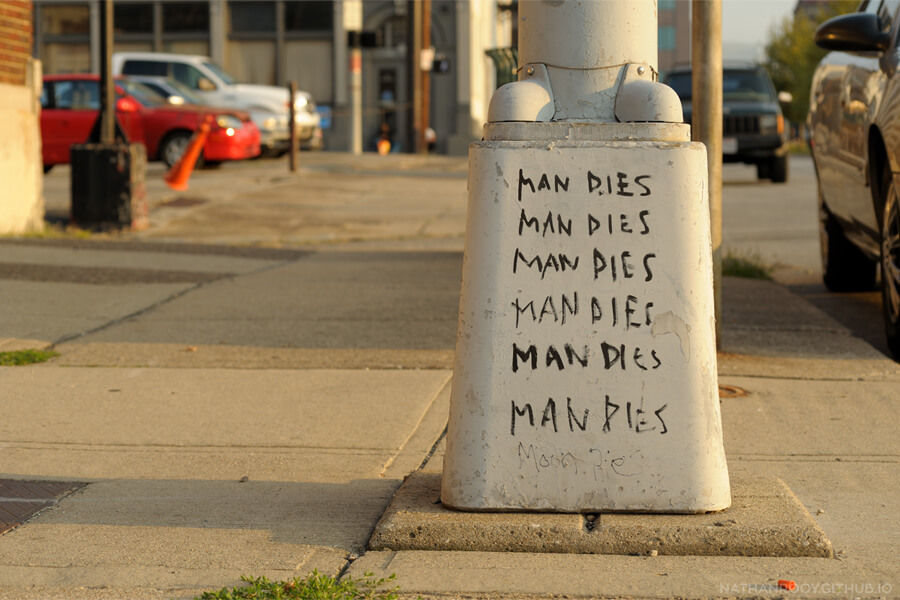 MAN DIES
MAN DIES
MAN DIES
MAN DIES
MAN DIES
MAN DIES
Moon Pie
NATHANROOY.GITHUB.IO